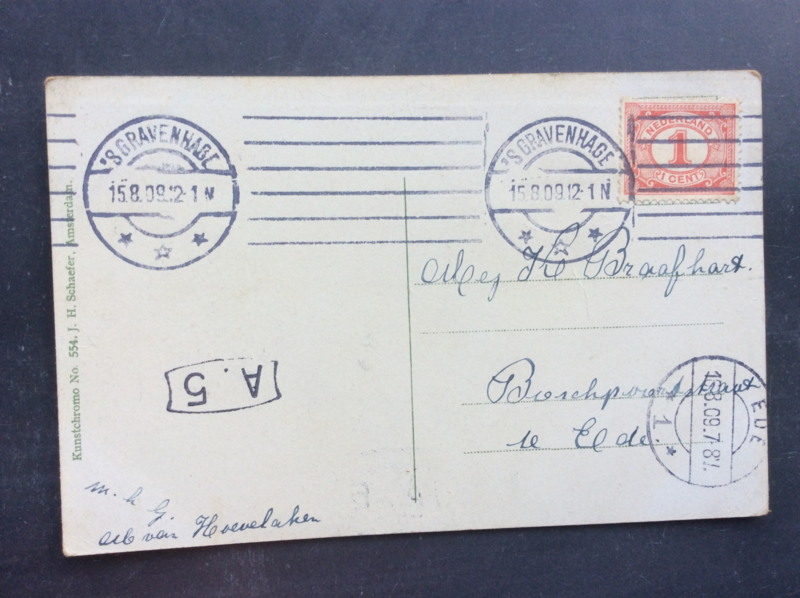 'SGRAVENHAGE
15.8.09.12-1 N
'SGRAVENHAGE
15.8.09.12-1 N
NEDERLAND
1
1 CENT
Mej Braafhart.
te Ede.
EDE
8.09.7-8V.
1.
A.5
m. h. G.
van Hoevelaken
Kunstchromo No. 554. J. H. Schaefer, Amsterdam.